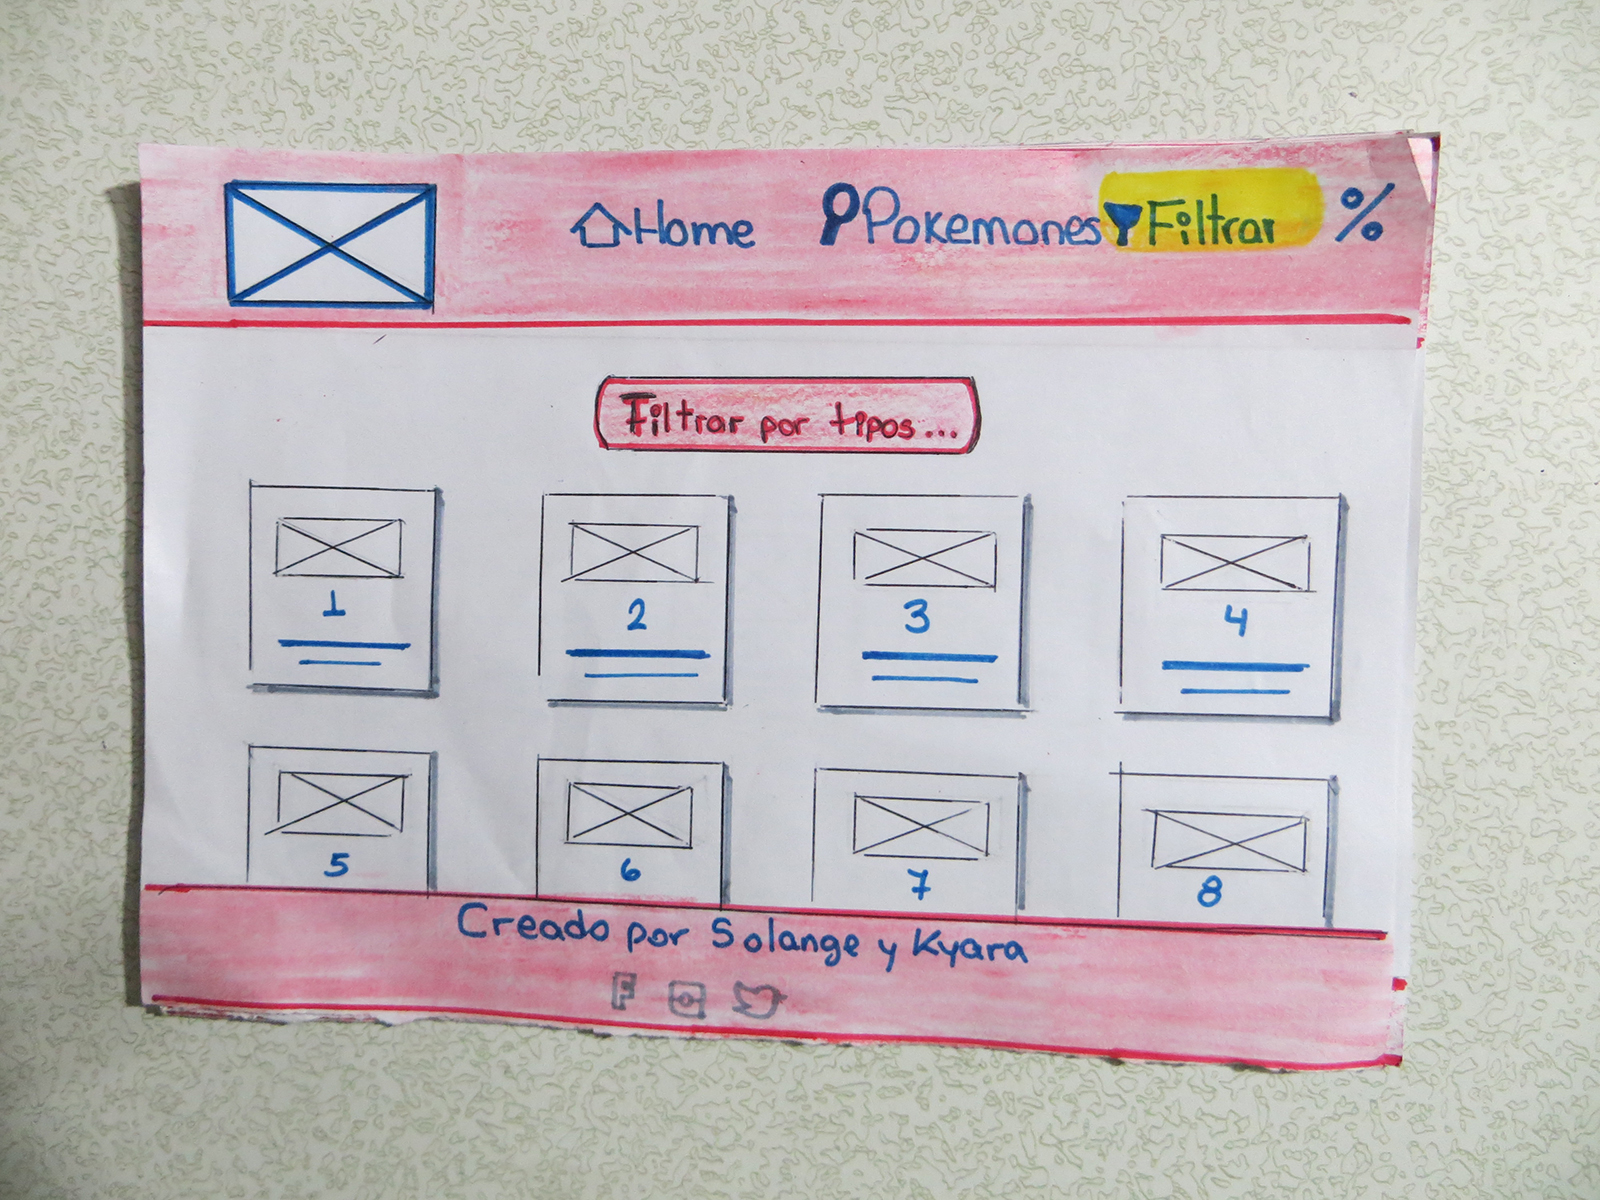 Home Pokemones Filtrar %
Filtrar por tipos...
1 2 3 4
5 6 7 8
Creado por Solange y Kyara
F